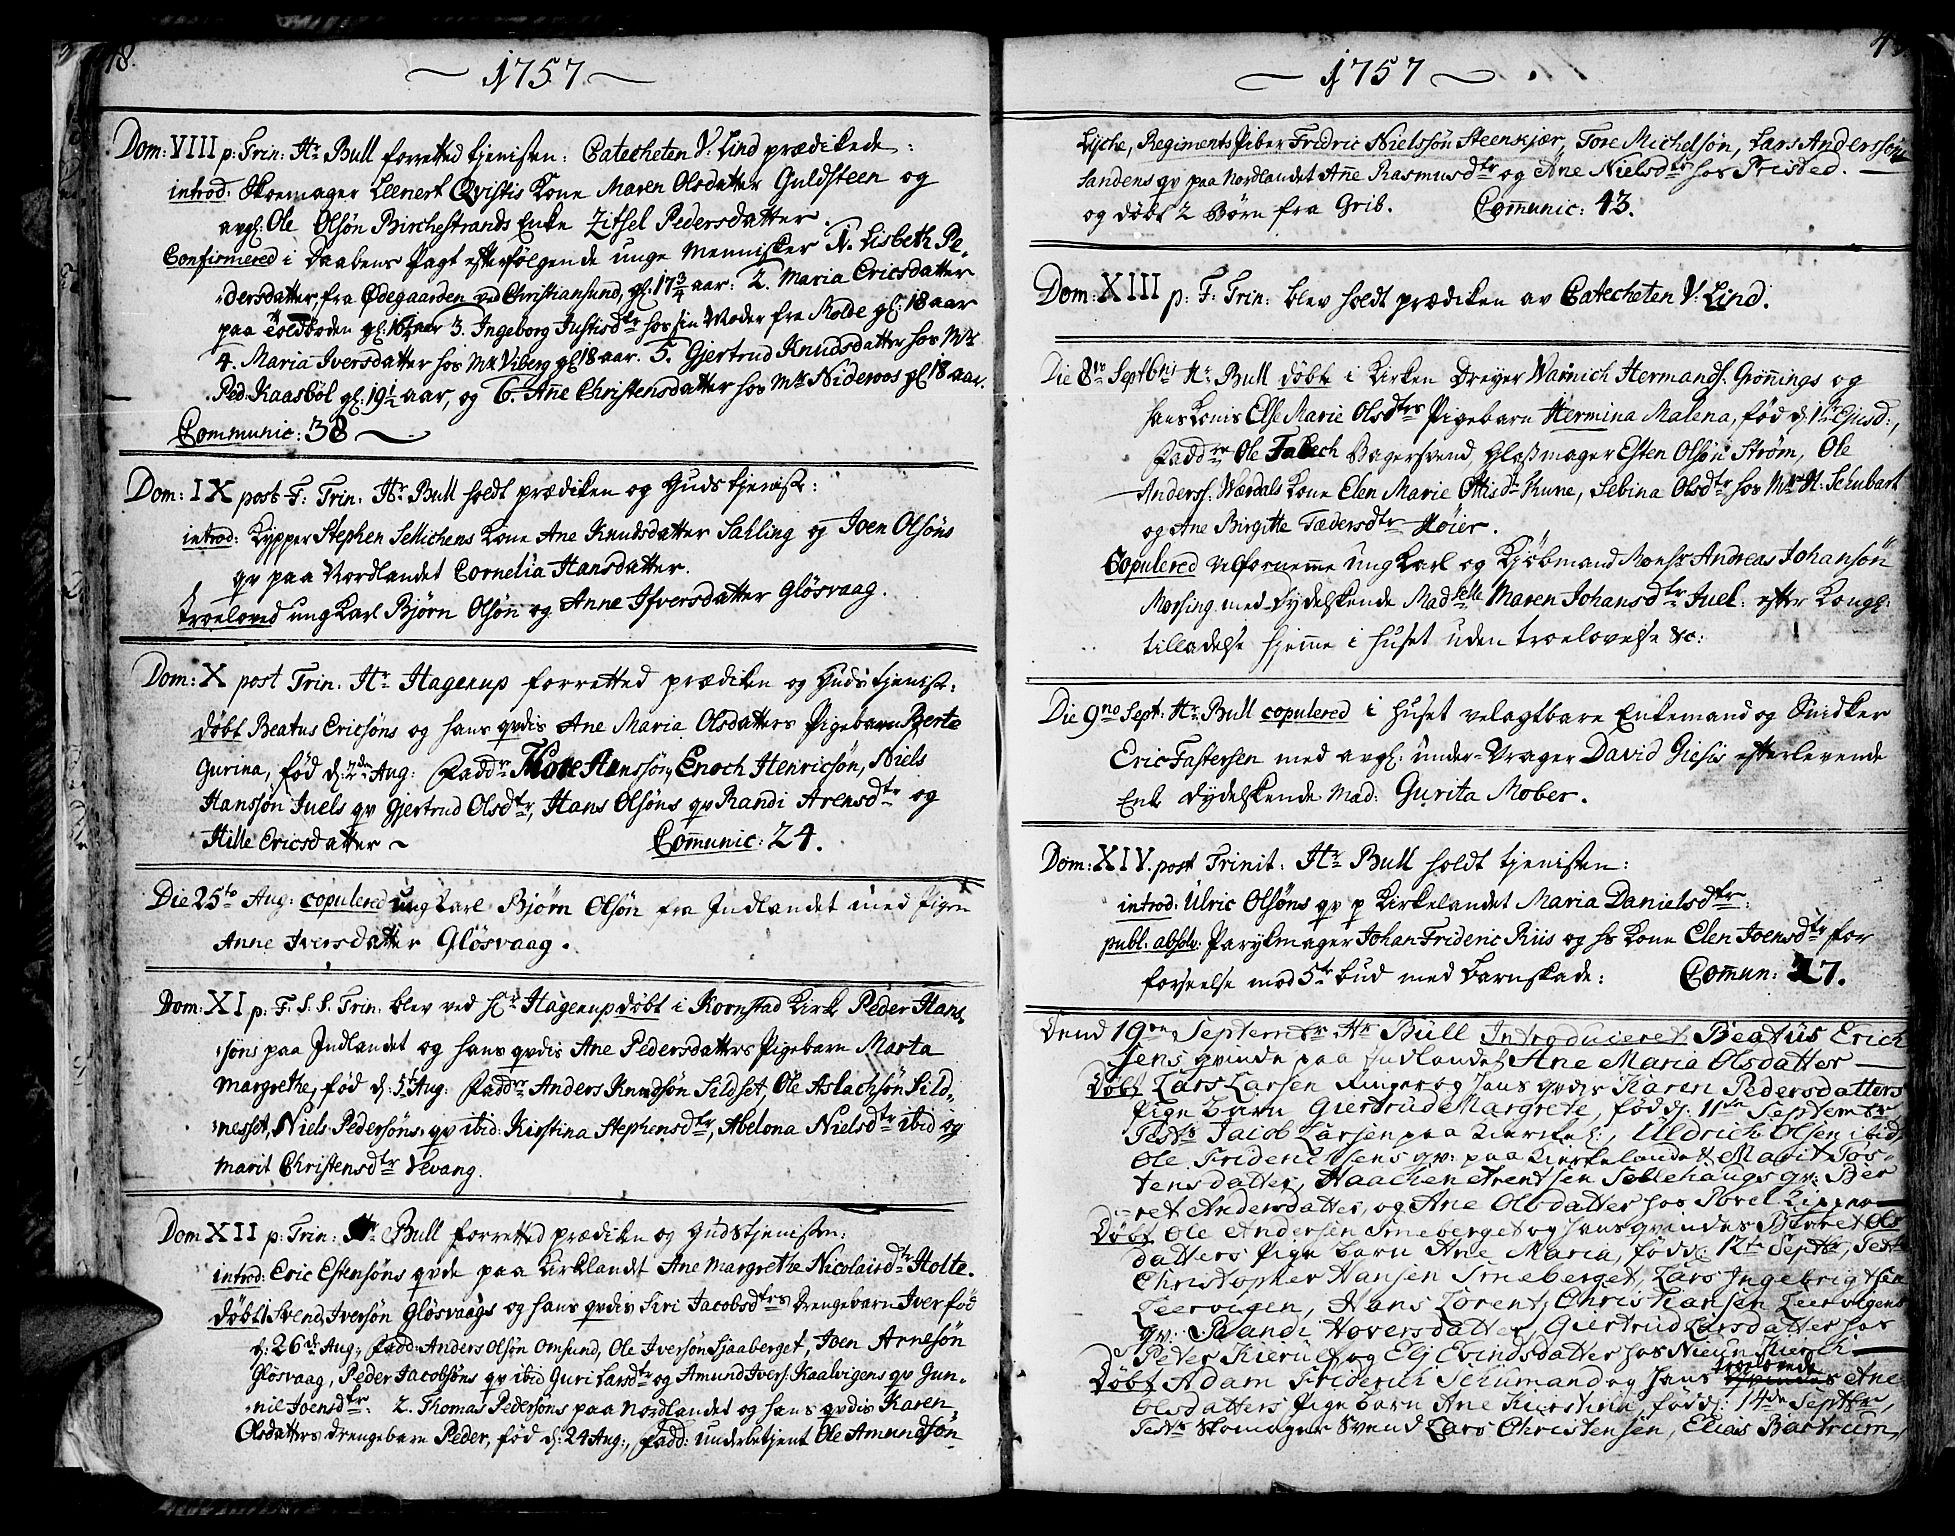 48.
1757
Dom: VIII p: Trin: Hr Bull forretted tjenisten: Catecheten V: Lind prædikede:
introd: Skoemager Leenert Qvistis Kone Maren Olsdatter Guldsteen og
avgl: Ole Olsøn Birchestrands Enke Zitsel Pedersdatter.
Confirmered i Daabens Pagt efterfølgende unge Mennisker 1. Lisbeth Pe-
dersdatter, fra Ødegaarden ved Christiansund, gl: 17 3/4 aar: 2. Maria Ericsdatter
paa Toldboden gl: 16 1/2 aar 3. Ingeborg Justisdtr hos sin Moder fra Molde gl: 18 aar
4. Maria Iversdatter hos Mr Viberg gl 18 aar. 5. Gjertrud Knudsdatter hos Mr
Ped: Kaasbøl gl: 19 1/2 aar, og 6. Ane Christensdatter hos Mr Nideroos gl 18 aar.
Communic: 38
Dom: IX post F: Trin: Hr Bull holdt prædiken og Guds tjeniste:
introd: Kypper Stephen Sellichens Kone Ane Knudsdatter Sahling og Joen Olsøns
qv paa Nordlandet Cornelia Hansdatter.
Troeloved ungkarl Bjørn Olsøn og Anne Ifversdatter Gløsvaag.
Dom: X post Trin: Hr Hagerup forretted prædiken og Guds tjeniste:
døbt Beatus Ericsøns og hans qvdis Ane Maria Olsdatters Pigebarn Berte
Gurina, fød d: 2den Aug: Faddr Thore Hanssøn, Enoch Henricsøn, Niels
Hanssøn Juels qv Gjertrud Olsdtr, Hans Olsøns qv Randi Arensdtr og
Hille Ericsdatter ~ Communic: 24.
Die 25to Aug: copulered ungkarl Bjørn Olsøn fra Indlandet med Pigen
Anne Iversdatter Gløsvaag.
Dom: XI p: F: S: S: Trin: blev ved Hr Hagerup døbt i Kornstad Kirke Peder Hans
søns paa Indlandet og hans qvdis Ane Pedersdatters Pigebarn Marta
Margrethe, fød d: 5t Aug: Faddr Anders Knudsøn Sildset, Ole Aslachsøn Sild-
nesset, Niels Pedersøns qv ibid: Kirstina Stephensdtr, Abelona Nielsdtr ibid og
Marit Christensdtr Vevang.
Dom XII p: Trin: Hr Bull forretted prædiken og Gudstjenisten:
introd: Eric Estensøns qvde paa Kirklandet Ane Margrethe Nicolaisdtr Holte.
døbt 1 Svend Iversøn Gløsvaags og hans qvdis Siri Jacobsdtrs Drengebarn Iver fød
d: 26de Aug:, Fadd: Anders Olsøn Omsund, Ole Iversøn Sjaaberget, Joen Arnesøn
Gløsvaag, Peder Jacobsøns qv ibid Guri Larsdtr og Amund Ivers: Kaalvigens qv Gun-
nil Joensdtr. 2. Thomas Pedersøns paa Nordlandet og hans qvdis Karen
Olsdatters drengebarn Peder, fød d: 24 Aug:, Fadd: underbetjent Ole Amundsøn
1757
Lyche, Regiments Piber Fredric Nielssøn Steenkjær, Tore Michelsøn, Lars Anderssøn
Sandens qv paa Nordlandet Ane Rasmusdtr og Ane Nielsdtr hos Frisded.
og døbt 2 Børn fra Grib. Communic: 43.
Dom: XIII p: F: Trin: blev holdt prædiken av Catecheten V: Lind.
Die 8vo Septbris Hr Bull døbt i Kirken Dreyer Warnich Hermands: Grønnings og
hans Konis Else Marie Olsdtrs Pigebarn Hermina Malena, fød d: 1ste Ejusd:,
Faddre Ole Falech Bagersvend, Glasmager Esten Olsøn Strøm, Ole
Anderss: Wærdals Kone Elen Marie Ottisdr Rune, Sebina Olsdtr hos Mr H: Schubart
og Ane Birgitte Tædersdtr Høier.
Copulered velfornemme ungkarl og Kjøbmand Monsr Andreas Johansøn
Morsing med Dydelskende Madselle Maren Johansdtr Juel: efter Kongl:
tilladelse hjemme i huset uden troelovelse &c:
Die 9no Sept: Hr Bull copulered i huset velagtbare Enkemand og Snidker
Eric Fastersen med avgl: under-Vrager David Giesiis efterlevende
Enke dydelskende Mad: Gurita Mober.
Dom: XIV. post Trinit: Hr Bull holdt tjenisten:
introd: Ulric Olsøns qv p Kirkelandet Maria Danielsdtr:
publ: absolv: Parykmager Johan Frideric Riis og hs Kone Elen Joensdtr for
forseelse mod 5te bud med barnskade: Commun: 17.
Dend 19ne Septembr Hr Bull Introducieret Beatus Erich
sens qvinde paa Indlandet Ane Maria Olsdatter
Døbt Lars Larsen Ringer og hans qvdis Karen Pedersdatters
Pige barn Giertrud Margrete, fød d: 11te Septembr
Test: Jacob Larsen paa Kierkel:, Uldrich Olsen ibid
Ole Friderichsens qv: paa Kierkelandet Marit Tos-
tensdatter, Haachen Arentsen Sollehaugs qv: Ber
ret Andersdatter, og Ane Olsdatter hos Povel Kipper
Døbt Ole Andersen Smeberget og hans qvindes Berret Ols
datters Pige barn Ane Maria, fød d: 12te Septbr, Test
Christopher Hansen Smeberget, Lars Ingebrigtsen
Leervigen, Hans Lorents Christiansen Leervigens
qv: Randi Hoversdatter, Giertrud Larsdatter hos
Peter Kierulf og Elj Evindsdatter hos Nieun Kierch
Døbt Adam Friderich Schumand og hans troelovede Ane
Olsdatters Pige barn Ane Kirstina, fød d: 14de Septbr,
Testr Skomager Svend Lars Christensen, Elias Bartrum,